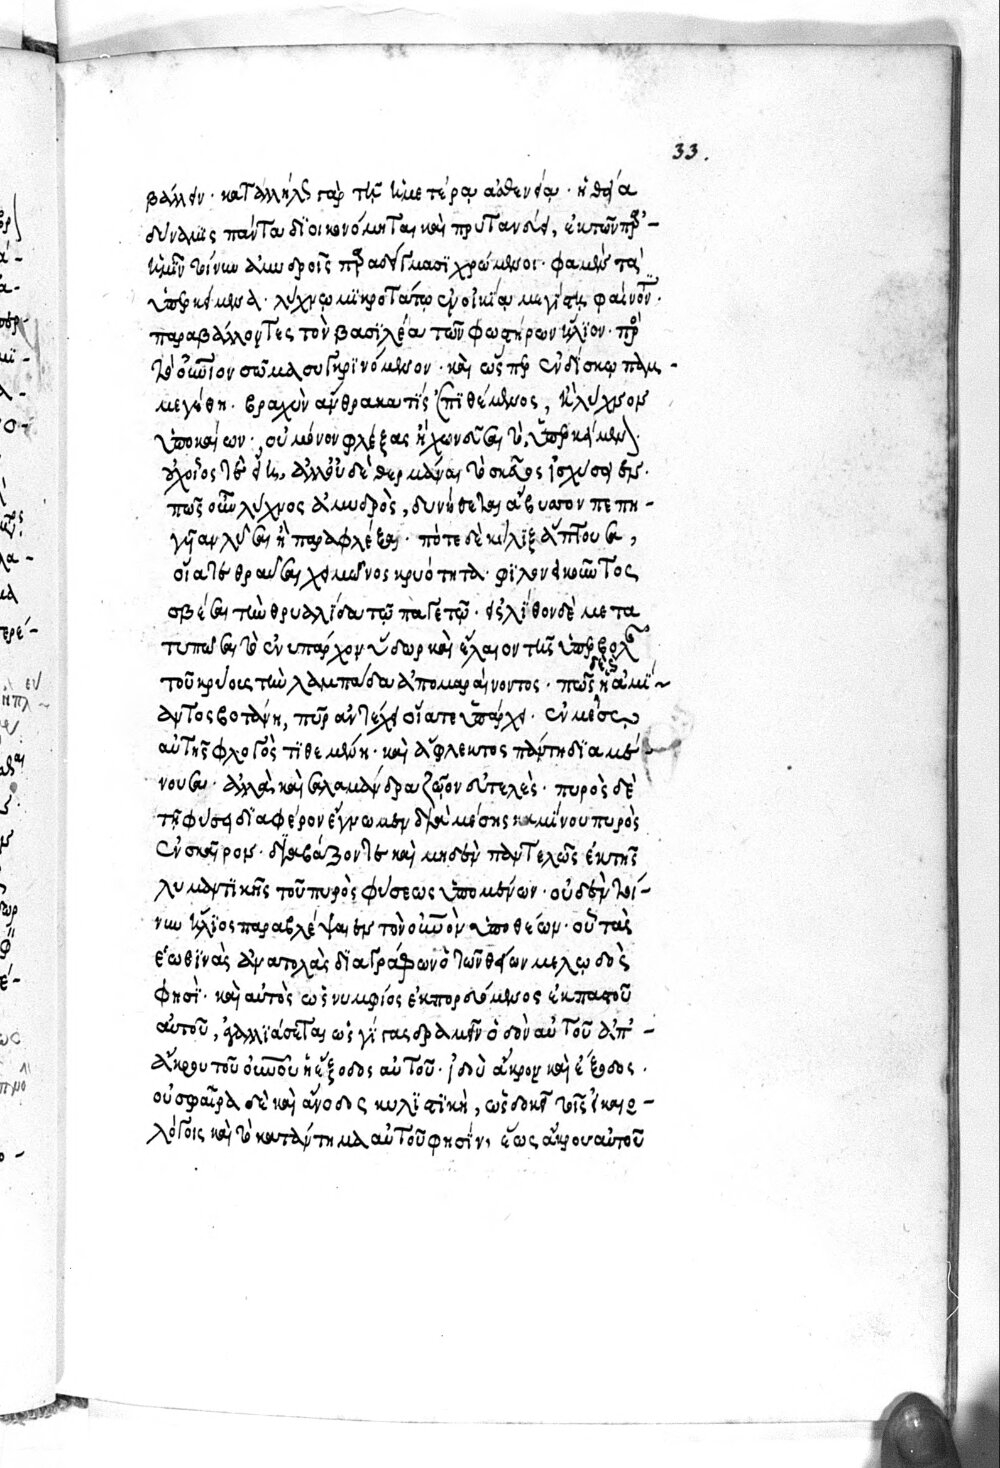 33.
βάλλειν· καταλλήλως γὰρ τῇ ἡμετέρᾳ ἀσθενείᾳ· ἡ θεία
δύναμις πάντα διοικονομῆται καὶ πρυτανεύει, ἐκ τῶν πρὸ-
ἡμῖν τοίνυν ἀμυδροῖς παραδείγμασι χρώμενοι· φαμὲν τὰ
ὑπερκείμενα· λύχνῳ μικροτάτῳ ἐν οἰκίᾳ μεγίστῃ φαίνοντι·
παραβάλλοντες τὸν βασιλέα τῶν φωστήρων ἥλιον· πρὸς
τὸ οὐράνιον σῶμα συγκρινόμενον· καὶ ὥσπερ ἐν δίσκῳ παμ-
μεγέθη· βραχὺν ἄνθρακα τὶς ἐπιθέμενος, ἢ λύχνον
ὑποκαίων·, οὐ μόνον φλέξας ἢ χωνεῦσαι τὸ ὑπερκείμενον
ἀλλ' οὐδὲ θερμάναι τὸ σκεῦος ἰσχύσειεν·
πῶς οὖν λύχνος ἀμυδρὸς, δυνηθείη ἄβυσσον πεπη-
γῆαν λῦσαι ἢ παραφλέξαι· πότε δὲ κύλιξ ἅπτουσα,
οἷά τε θραῦσαι χειμῶνος κρυότητα· φίλον εἰκότως
σβέσαι τὴν θρυαλίδα τῷ παγετῷ· εἰς λίθον δὲ μετα
τυπῶσαι τὸ ἐνυπάρχον ὕδωρ καὶ ἔλαιον τῆς ὑπερβολῆς
τοῦ κρύους τὴν λαμπάδα ἀπομαραίνοντος· πῶς δὲ ἡ ἀμί-
αντος βοτάνη, πῦρ ἀντέχειν οἷά τε ὑπάρχει· ἐν μέσῳ
αὐτῆς φλογὸς τιθεμένη· καὶ ἄφλεκτος πάντη διαμέ-
νουσα· ἀλλὰ καὶ σαλαμάνδρα ζῷον εὐτελὲς· πυρὸς δὲ
τῇ φύσει διαφέρον ἔγνωμεν διὰ μέσης καμίνου πυρὸς
ἐνσκαῖρον· διαβάζον τε καὶ μηδὲν παντελῶς ἐκ τῆς
λυμαντικῆς τοῦ πυρὸς φύσεως ὑπομένων· οὐδὲν τοί-
νυν ἥλιος παραβλέψαιεν τὸν οὐρανὸν ὑποθέων· οὗ τὰς
ἑωθινὰς ἀνατολὰς διαγράφων ὁ τῶν θείων μελῳδὸς
φησὶ· καὶ αὐτὸς ὡς νυμφίος ἐκπορευόμενος ἐκ παστοῦ
αὐτοῦ, ἀγαλλιάσεται ὡς γίγας δραμεῖν ὁδὸν αὐτοῦ ἀπ'-
ἄκρου τοῦ οὐρανοῦ ἡ ἔξοδος αὐτοῦ· ἰδοὺ ἄκρον καὶ ἔξοδος·
οὐ σφαῖρα δὲ καὶ ἄνοδος κυλιστικὴ, ὡς δοκεῖ τοῖς
λόγοις καὶ τὸ κατάντημα αὐτοῦ φησίν, ἕως ἄκρου αὐτοῦ